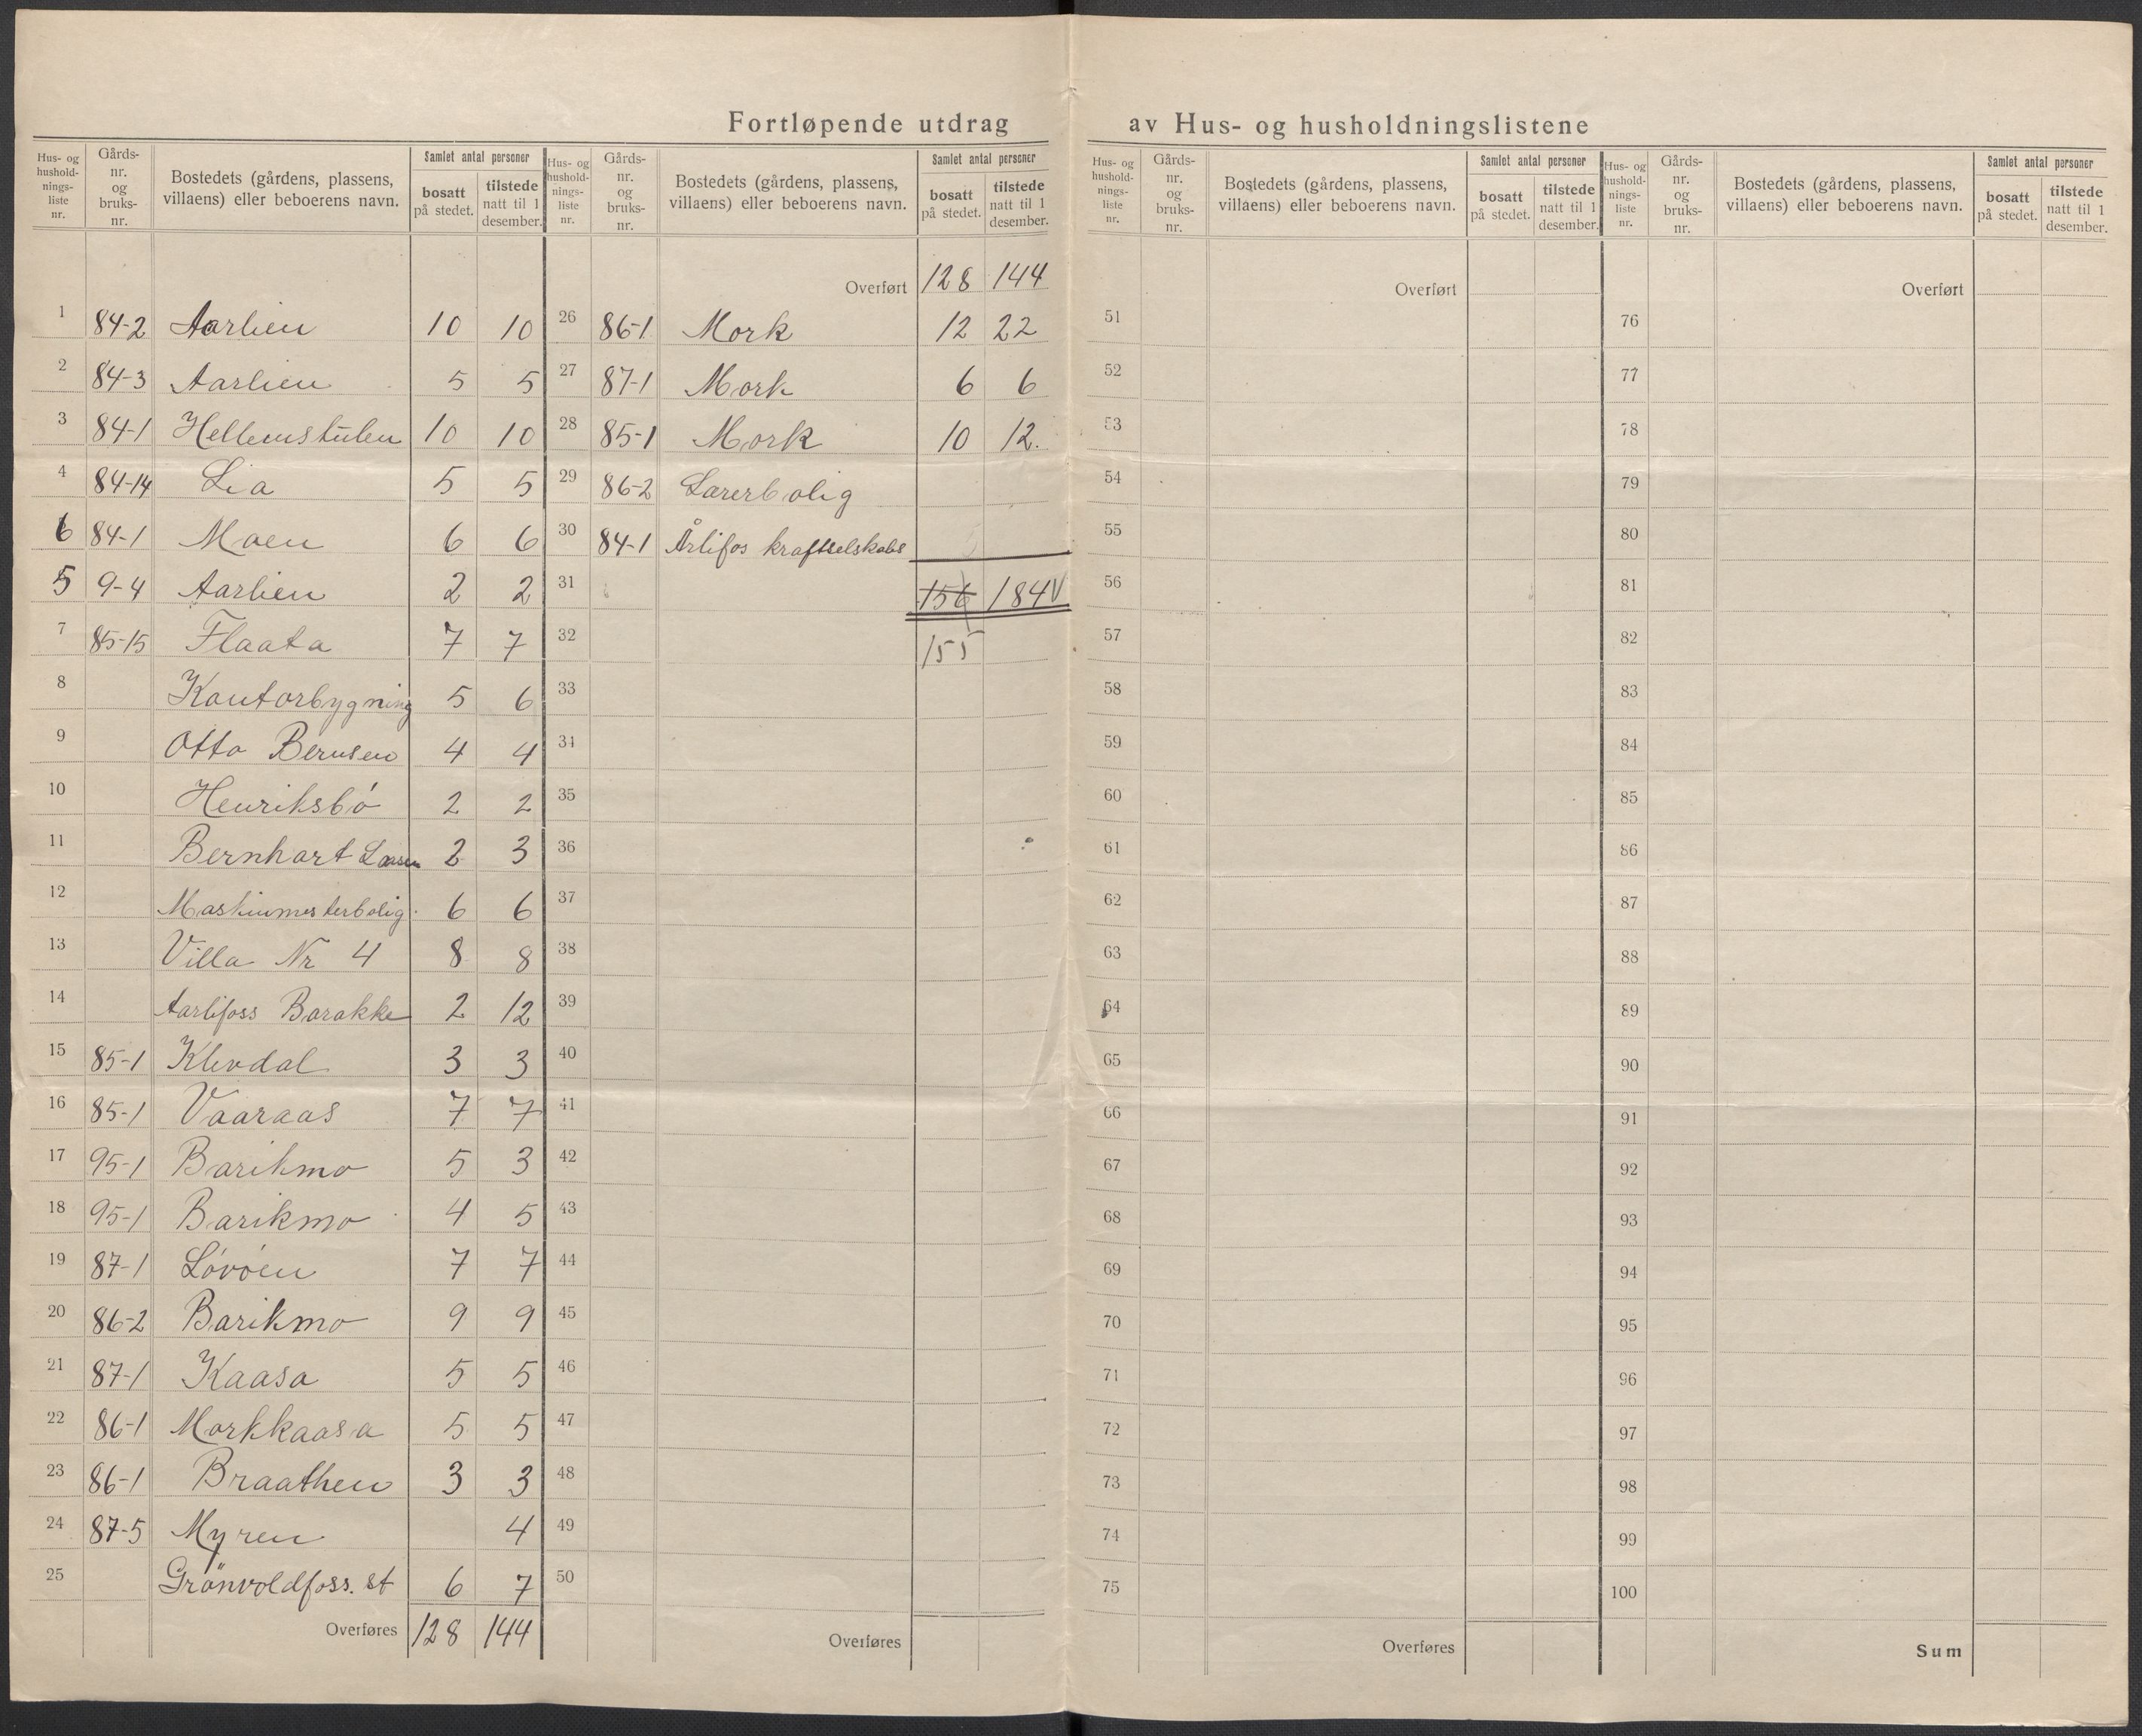 Fortløpende utdrag av Hus- og husholdningslistene
Hus- og hushold-nings-liste nr. Gårds-nr. og bruks-nr. Bostedets (gårdens, plassens, villaens) eller beboerens navn. Samlet antal personer bosatt på stedet. tilstede natt til 1 desember.
1 84-2 Aarlien 10 10
2 84-3 Aarlien 5 5
3 84-1 Hellemstulen 10 10
4 84-14 Lia 5 5
6 84-1 Moen 6 6
5 9-4 Aarlien 2 2
7 85-15 Flaata 7 7
8 Kontorbygning 5 6
9 Otto Bernsen 4 4
10 Henriksbö 2 2
11 Bernhart Larsen 2 3
12 Maskinmesterbolig 6 6
13 Villa Nr 4 8 8
14 Aarlifoss Barakke 2 12
15 85-1 Klevdal 3 3
16 85-1 Vaaraas 7 7
17 95-1 Barikmo 5 3
18 95-1 Barikmo 4 5
19 87-1 Lövöen 7 7
20 86-2 Barikmo 9 9
21 87-1 Kaasa 5 5
22 86-1 Morkkaasa 5 5
23 86-1 Braathen 3 3
24 87-5 Myren 4
25 Grönvoldfoss. st 6 7
Overføres 128 144
Hus- og hushold-nings-liste nr. Gårds-nr. og bruks-nr. Bostedets (gårdens, plassens, villaens) eller beboerens navn. Samlet antal personer bosatt på stedet. tilstede natt til 1 desember.
Overført 128 144
26 86-1 Mork 12 22
27 87-1 Mork 6 6
28 85-1 Mork 10 12.
29 86-2 Lærerbolig
30 84-1 Årlifos kraftselskabs
31 156 184 V
32 155
33
34
35
36
37
38
39
40
41
42
43
44
45
46
47
48
49
50
Overføres
Hus- og hushold-nings-liste nr. Gårds-nr. og bruks-nr. Bostedets (gårdens, plassens, villaens) eller beboerens navn. Samlet antal personer bosatt på stedet. tilstede natt til 1 desember.
Overført
51
52
53
54
55
56
57
58
59
60
61
62
63
64
65
66
67
68
69
70
71
72
73
74
75
Overføres
Hus- og hushold-nings-liste nr. Gårds-nr. og bruks-nr. Bostedets (gårdens, plassens, villaens) eller beboerens navn. Samlet antal personer bosatt på stedet. tilstede natt til 1 desember.
Overført
76
77
78
79
80
81
82
83
84
85
86
87
88
89
90
91
92
93
94
95
96
97
98
99
100
Sum